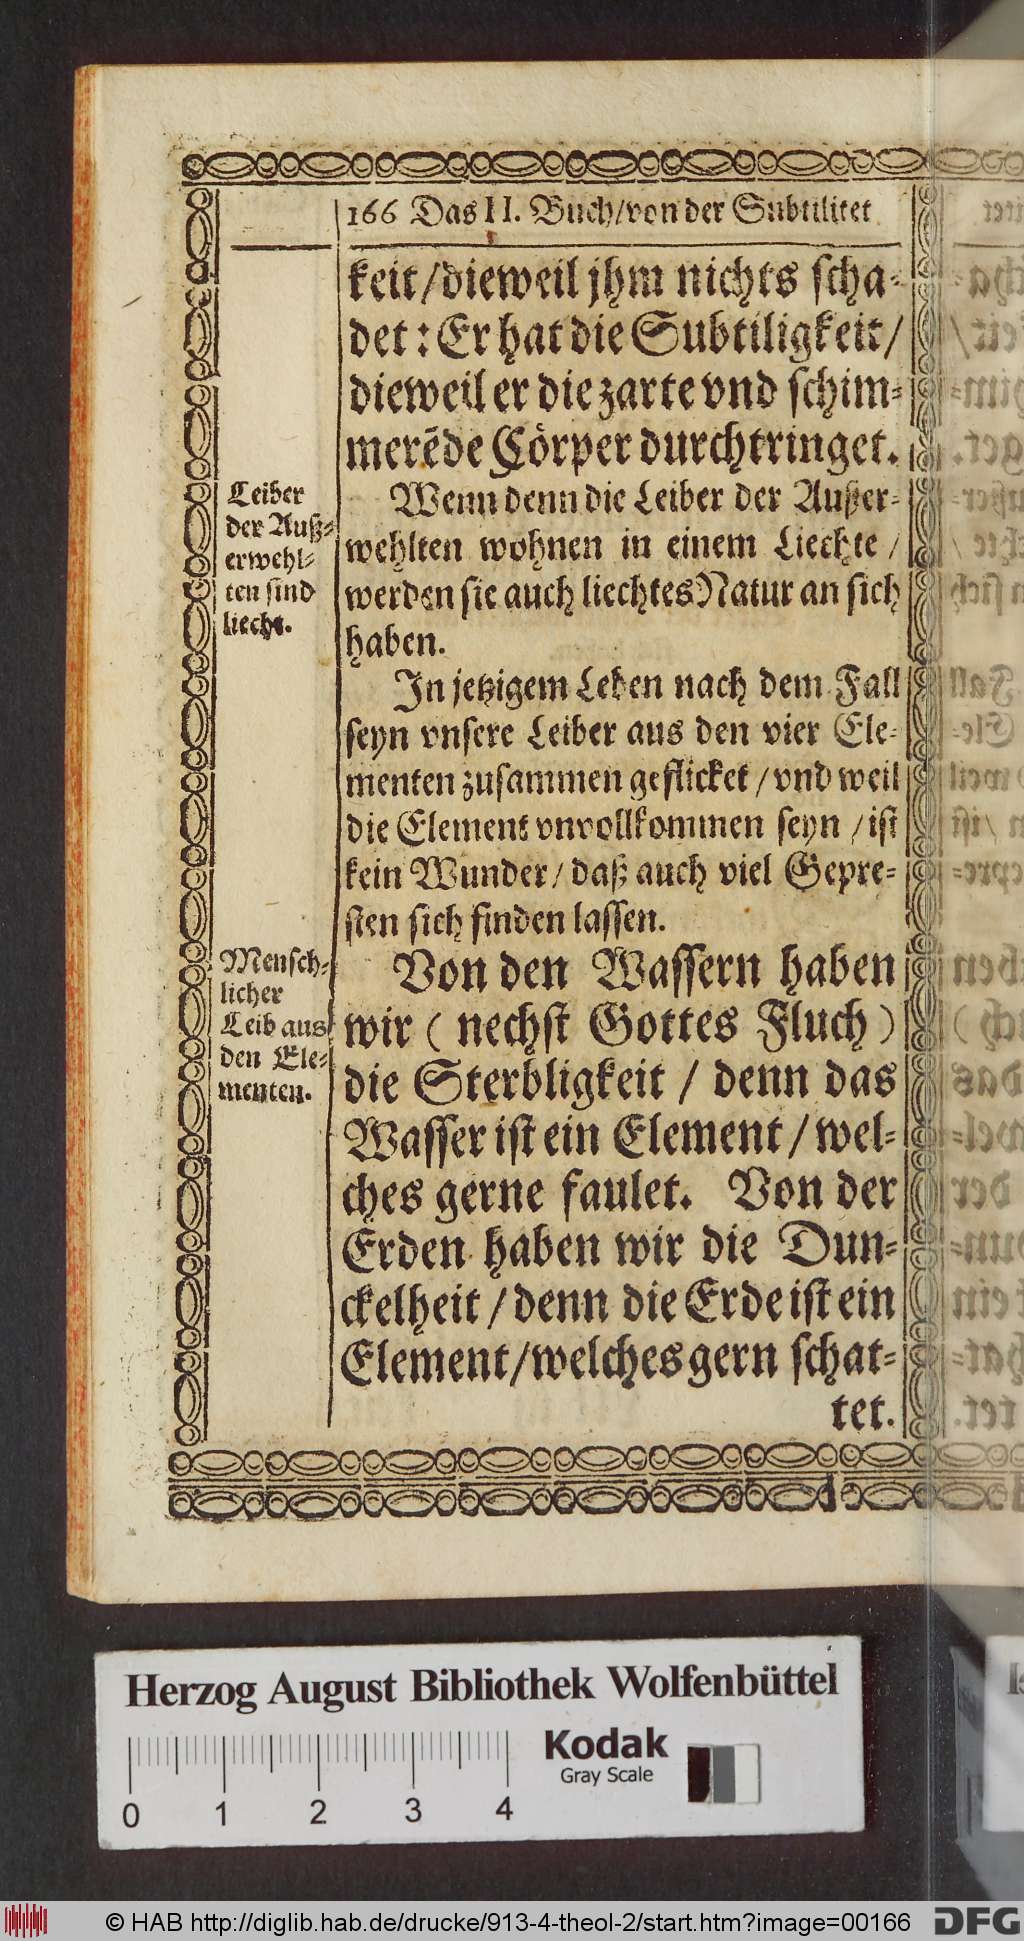 166 Das II. Buch/von der Subtilitet
keit/dieweil jhm nichts scha-
det: Er hat die Subtiligkeit/
dieweil er die zarte vnd schim-
merēde Cörper durchtringet.
Leiber
der Auß-
erwehl-
ten sind
liecht.
Wenn denn die Leiber der Außer-
wehlten wohnen in einem Liechte /
werden sie auch liechtes Natur an sich
haben.
In jetzigem Leben nach dem Fall
seyn vnsere Leiber aus den vier Ele-
menten zusammen geflicket / vnd weil
die Element vnvollkommen seyn / ist
kein Wunder / daß auch viel Gepre-
sten sich finden lassen.
Mensch-
licher
Leib aus
den Ele-
menten.
Von den Wassern haben
wir ( nechst Gottes Fluch )
die Sterbligkeit / denn das
Wasser ist ein Element / wel-
ches gerne faulet. Von der
Erden haben wir die Dun-
ckelheit / denn die Erde ist ein
Element/welches gern schat-
tet.
Herzog August Bibliothek Wolfenbüttel
Kodak
Gray Scale
0 1 2 3 4
© HAB http://diglib.hab.de/drucke/913-4-theol-2/start.htm?image=00166
DFG